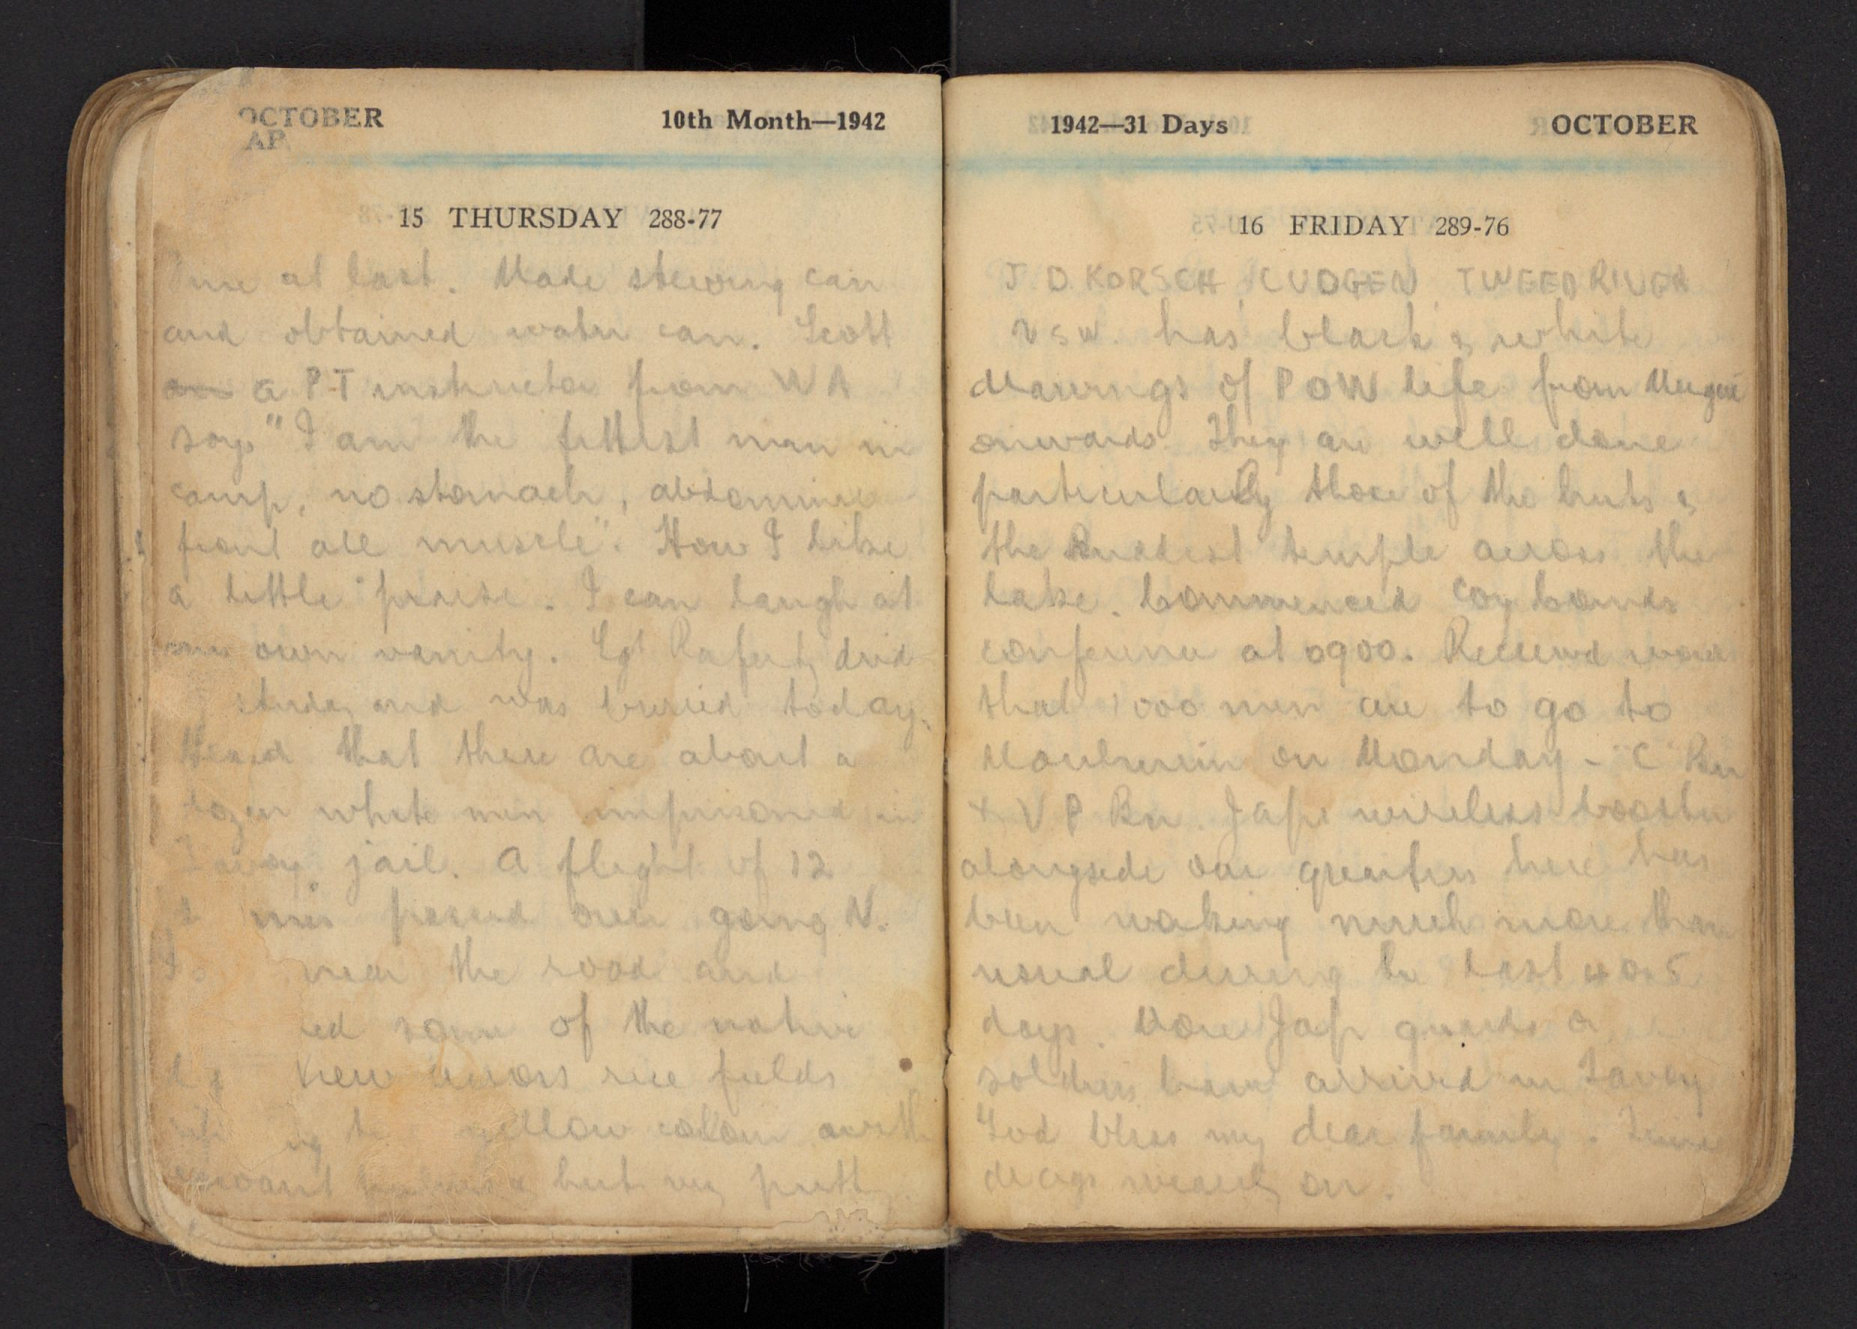 OCTOBER
10th Month—1942
15 THURSDAY 288-77
at last. Made stewing can
and obtained water can. Scott
a P-T instructor from WA
says "I am the fittest man in
camp, no stomach, abdomine
front all muscle". How I like
a little praise. I can laugh at
own vanity. Sgt Raferty died
and was buried today.
Heard that there are about a
dozen white men imprisoned in
Tavoy jail. A flight of 12
passed over going N.
near the road and
some of the native
view across rice fields
yellow colour
but very
1942—31 Days
OCTOBER
16 FRIDAY 289-76
J. D. KORSCH, CUDGEN, TWEED RIVER
NSW. has black & white
drawings of POW life from Mergui
onwards. They are well done
particularly those of the huts &
the Buddest temple across the
lake. Commenced Coy Comds
conference at 0900. Received word
that 1000 men are to go to
Moulmein on Monday - "C" Bn
& V P Bn. Japs wireless booster
alongside our quarters here has
been working much more than
usual during the last 4 or 5
days. More Jap guards or
soldiers have arrived in Tavoy
God bless my dear family. Time
drags wearily on.